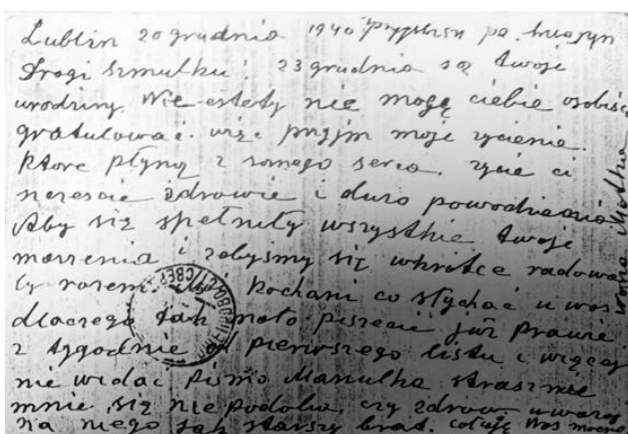 Lublin 20 grudnia 1940
Drogi Szmulku! 23 grudnia są twoje
urodziny. Nie-estety nie mogę ciebie osobiśc
gratulować. więc przyjm moje życienia.
które płyną z samego serca. życie ci
naresćie zdrowie i duzo powodzienia
Aby się spełniły wszystkie twoje
marzenia i żebyśmy się wkrótce radowa
ly razem. Moi kochani co słychać u was
dlaczego tak mało piszecie już prawie
2 tygodnie od pierwszego listu i więcej
nie widać pismo Manulka strasznie
mnie się nie podoba. czy zdrów uważaj
na niego jak starszy brat. całuję Was mocno
wasza Matka